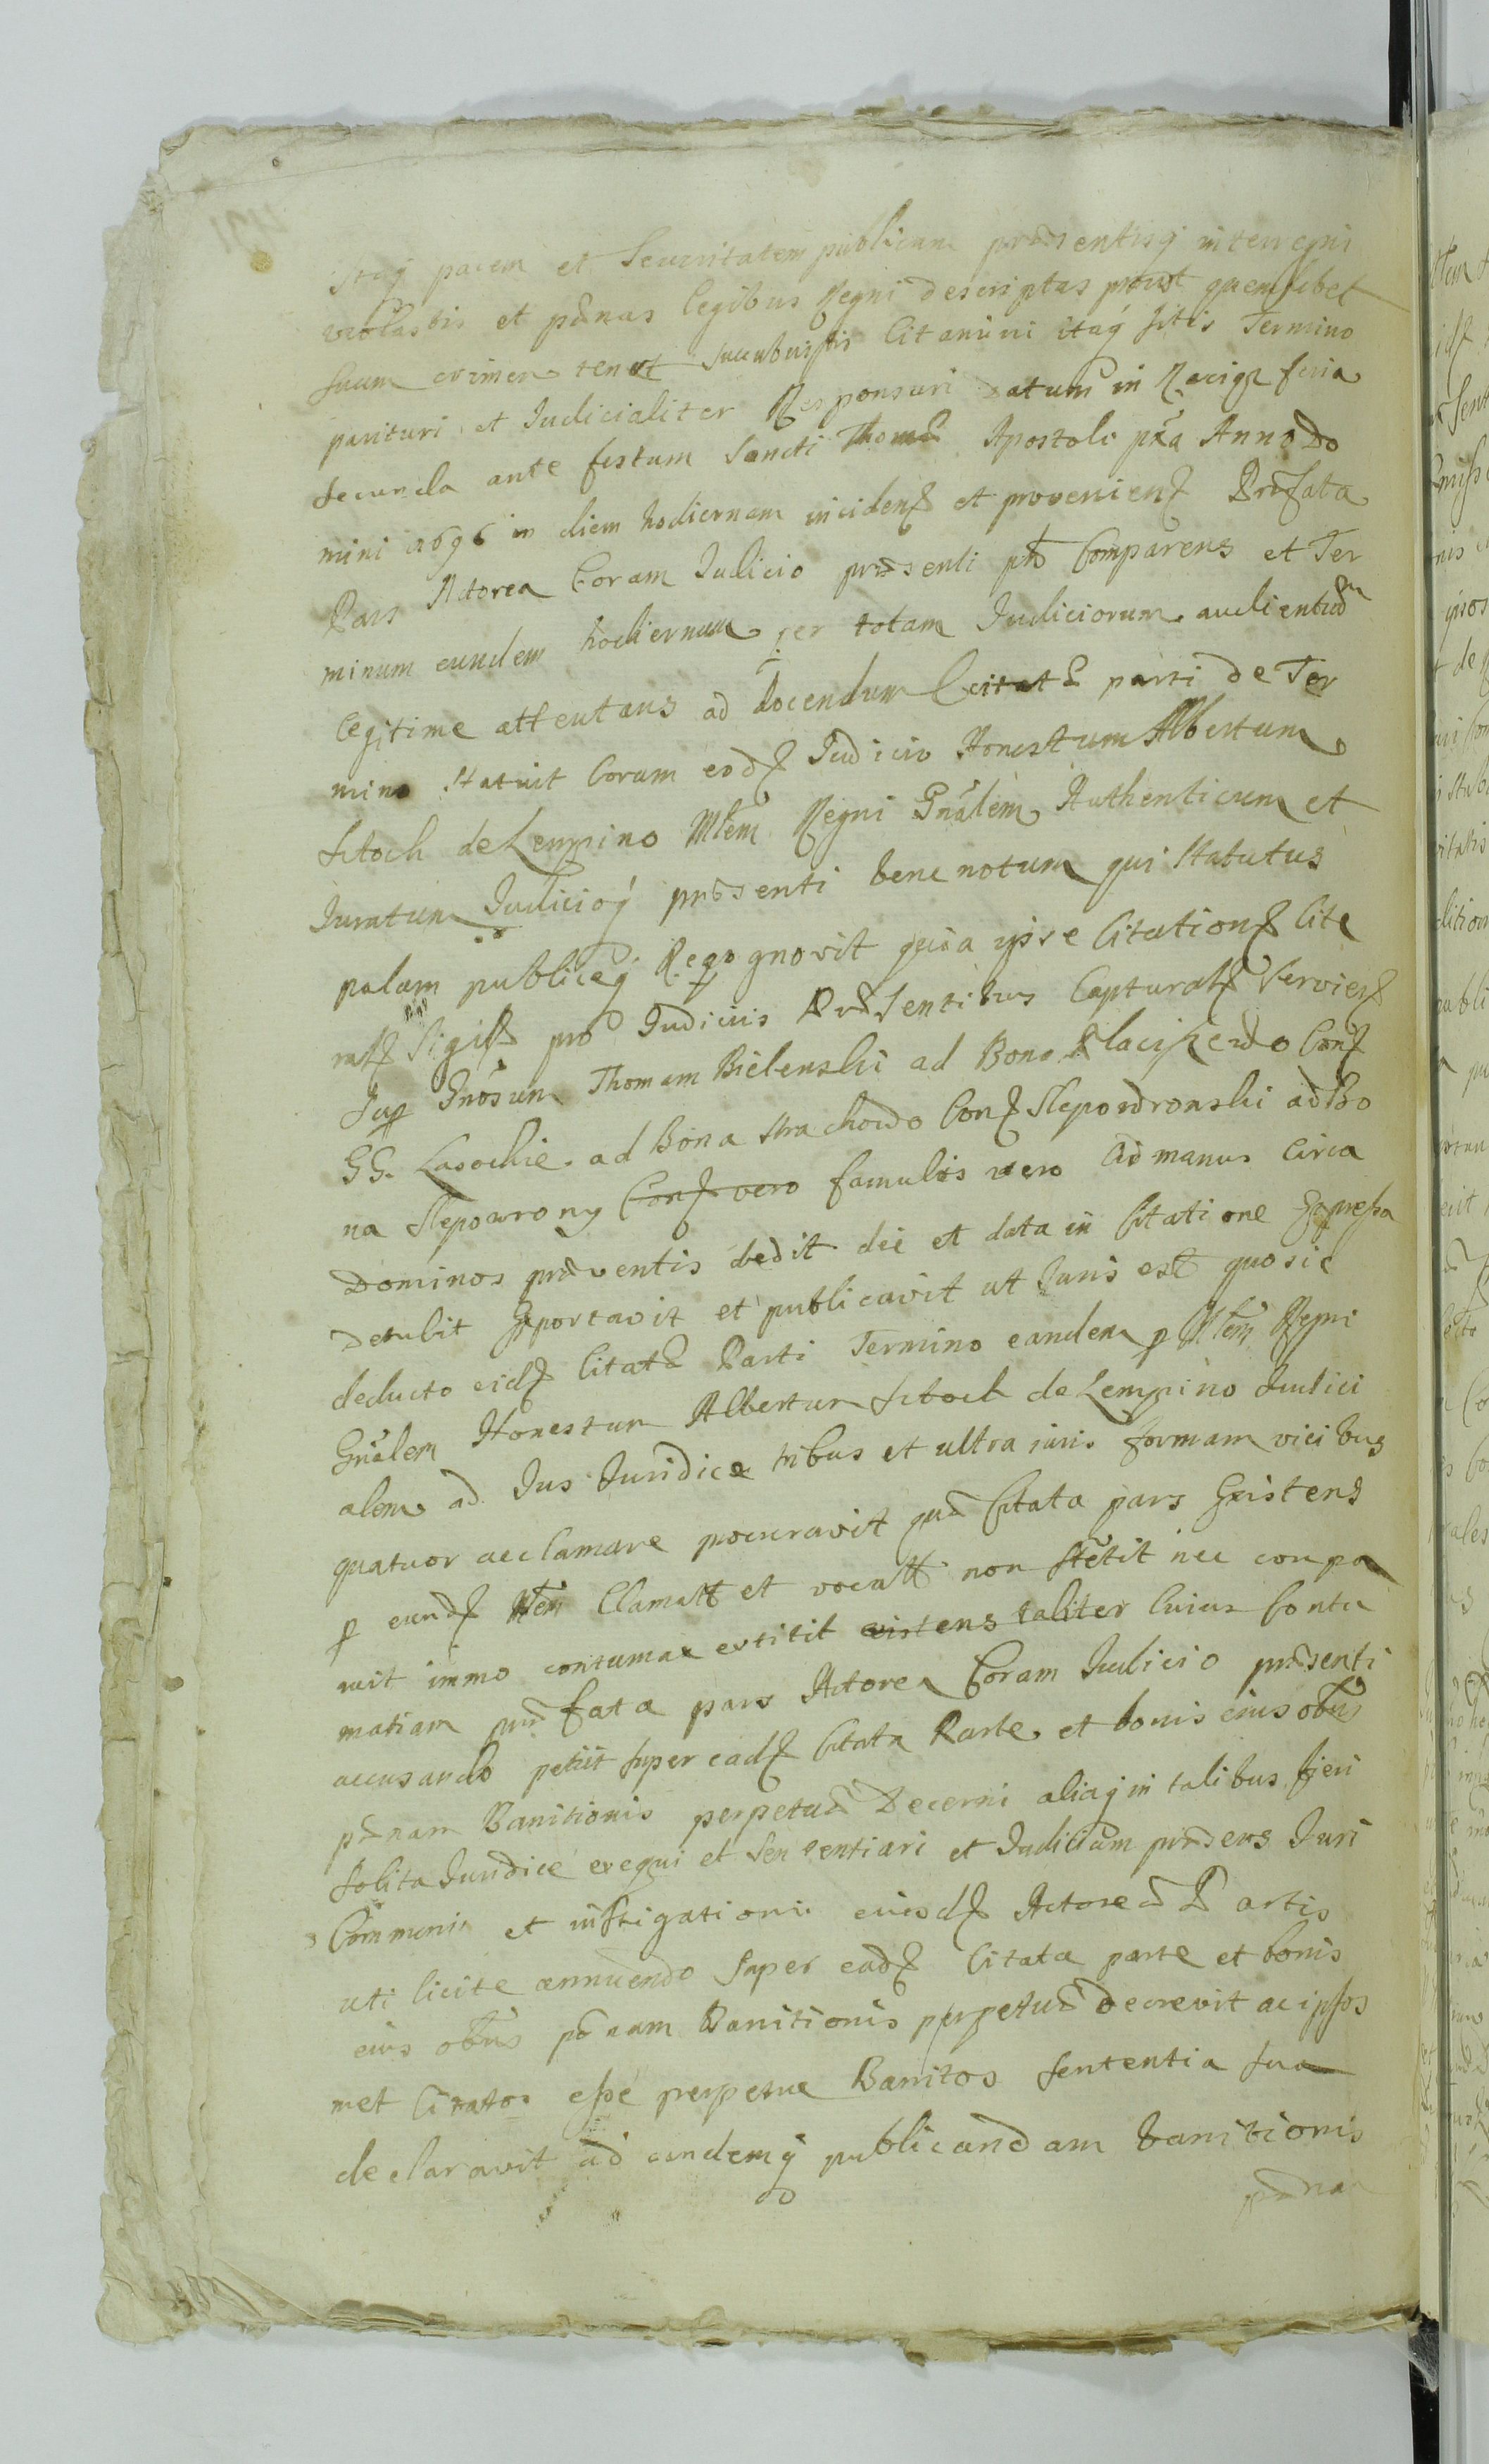 pacem et Securitatem publicam præsentisq interregni
violastis et pænas legibus Regni descriptas prout quemlibet
suum crimen tenet succubuistis Citamini itaq sitis Termino
parituri et Iudicialiter Responsuri datum in Raciąż feria
secunda ante festum Sancti Thomæ Apostoli pxa Anno Do
mini 1696 in diem hodiernam inciden et provenien Præfata
Pars Actorea Coram Iudicio præsenti Comparens et Ter
minum eundem hodiernum per totam Iudiciorum audientiam
legitime attentans ad docendum Citatæ parti de Ter
mino Statuit Coram eod Iudicio Honestum Albertum
Sitoch de Lempino Mlem Regni Gnalem Authenticum et
Iuratum Iudicioq præsenti bene notum qui Statutus
palam publiceq Recognovit quia ipse Citation Lite
ral Sigil pro Iudiciis Præsentibus Captural Servien
Sup Gnosum Thomam Bielenski ad Bona Con
GG. Lasockie ad Bona Strachowo Con Slepowronski ad Bo
na Slepowrony Con vero famulis vero ad manus circa
Dominos præventis dedit die et data in Citatione Expressa
detulit Exportavit et publicavit ut Iuris est quo sic
deducto eid Citatæ Parti Termino eandem p Mlem Regni
Gnalem Honestum Albertum Sitoch de Lempino Iudici
alem ad Ius Iuridice tribus et ultra iuris formam vicibus
quatuor acclamare procuravit quæ Citata pars Existens
p eund Mlem Clamatt et vocatt non stetit nec compa
ruit immo contumax extitit existens taliter Cuius Contu
matiam præfata pars Actorea Coram Iudicio præsenti
accusando petiit super ead Citata Parte et bonis eius obus
pænam Banitionis perpetuæ Decerni aliaq in talibus fieri
Solita Iuridice exequi et Sententiari et Iudicium præsens Iuri
Communi et instigationi eiusd Actoreæ Partis
uti licite annuendo super ead Citata parte et bonis
eius obus pænam Banitionis perpetuæ decrevit ac ipsos
met Citatos esse perpetue Banitos sententia sua
declaravit ad eandemq publicandam banitionis
pænam